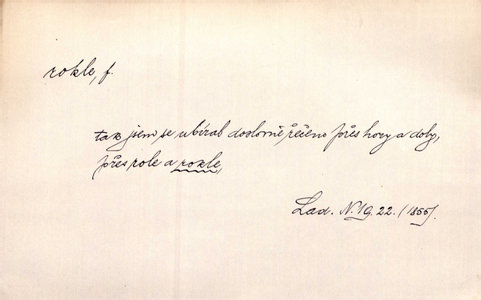 rokle, f.
tak jsem se ubíral doslovně řečeno přes hory a doly,
přes role a rokle,
Lad. N. 19. 22. (1855).